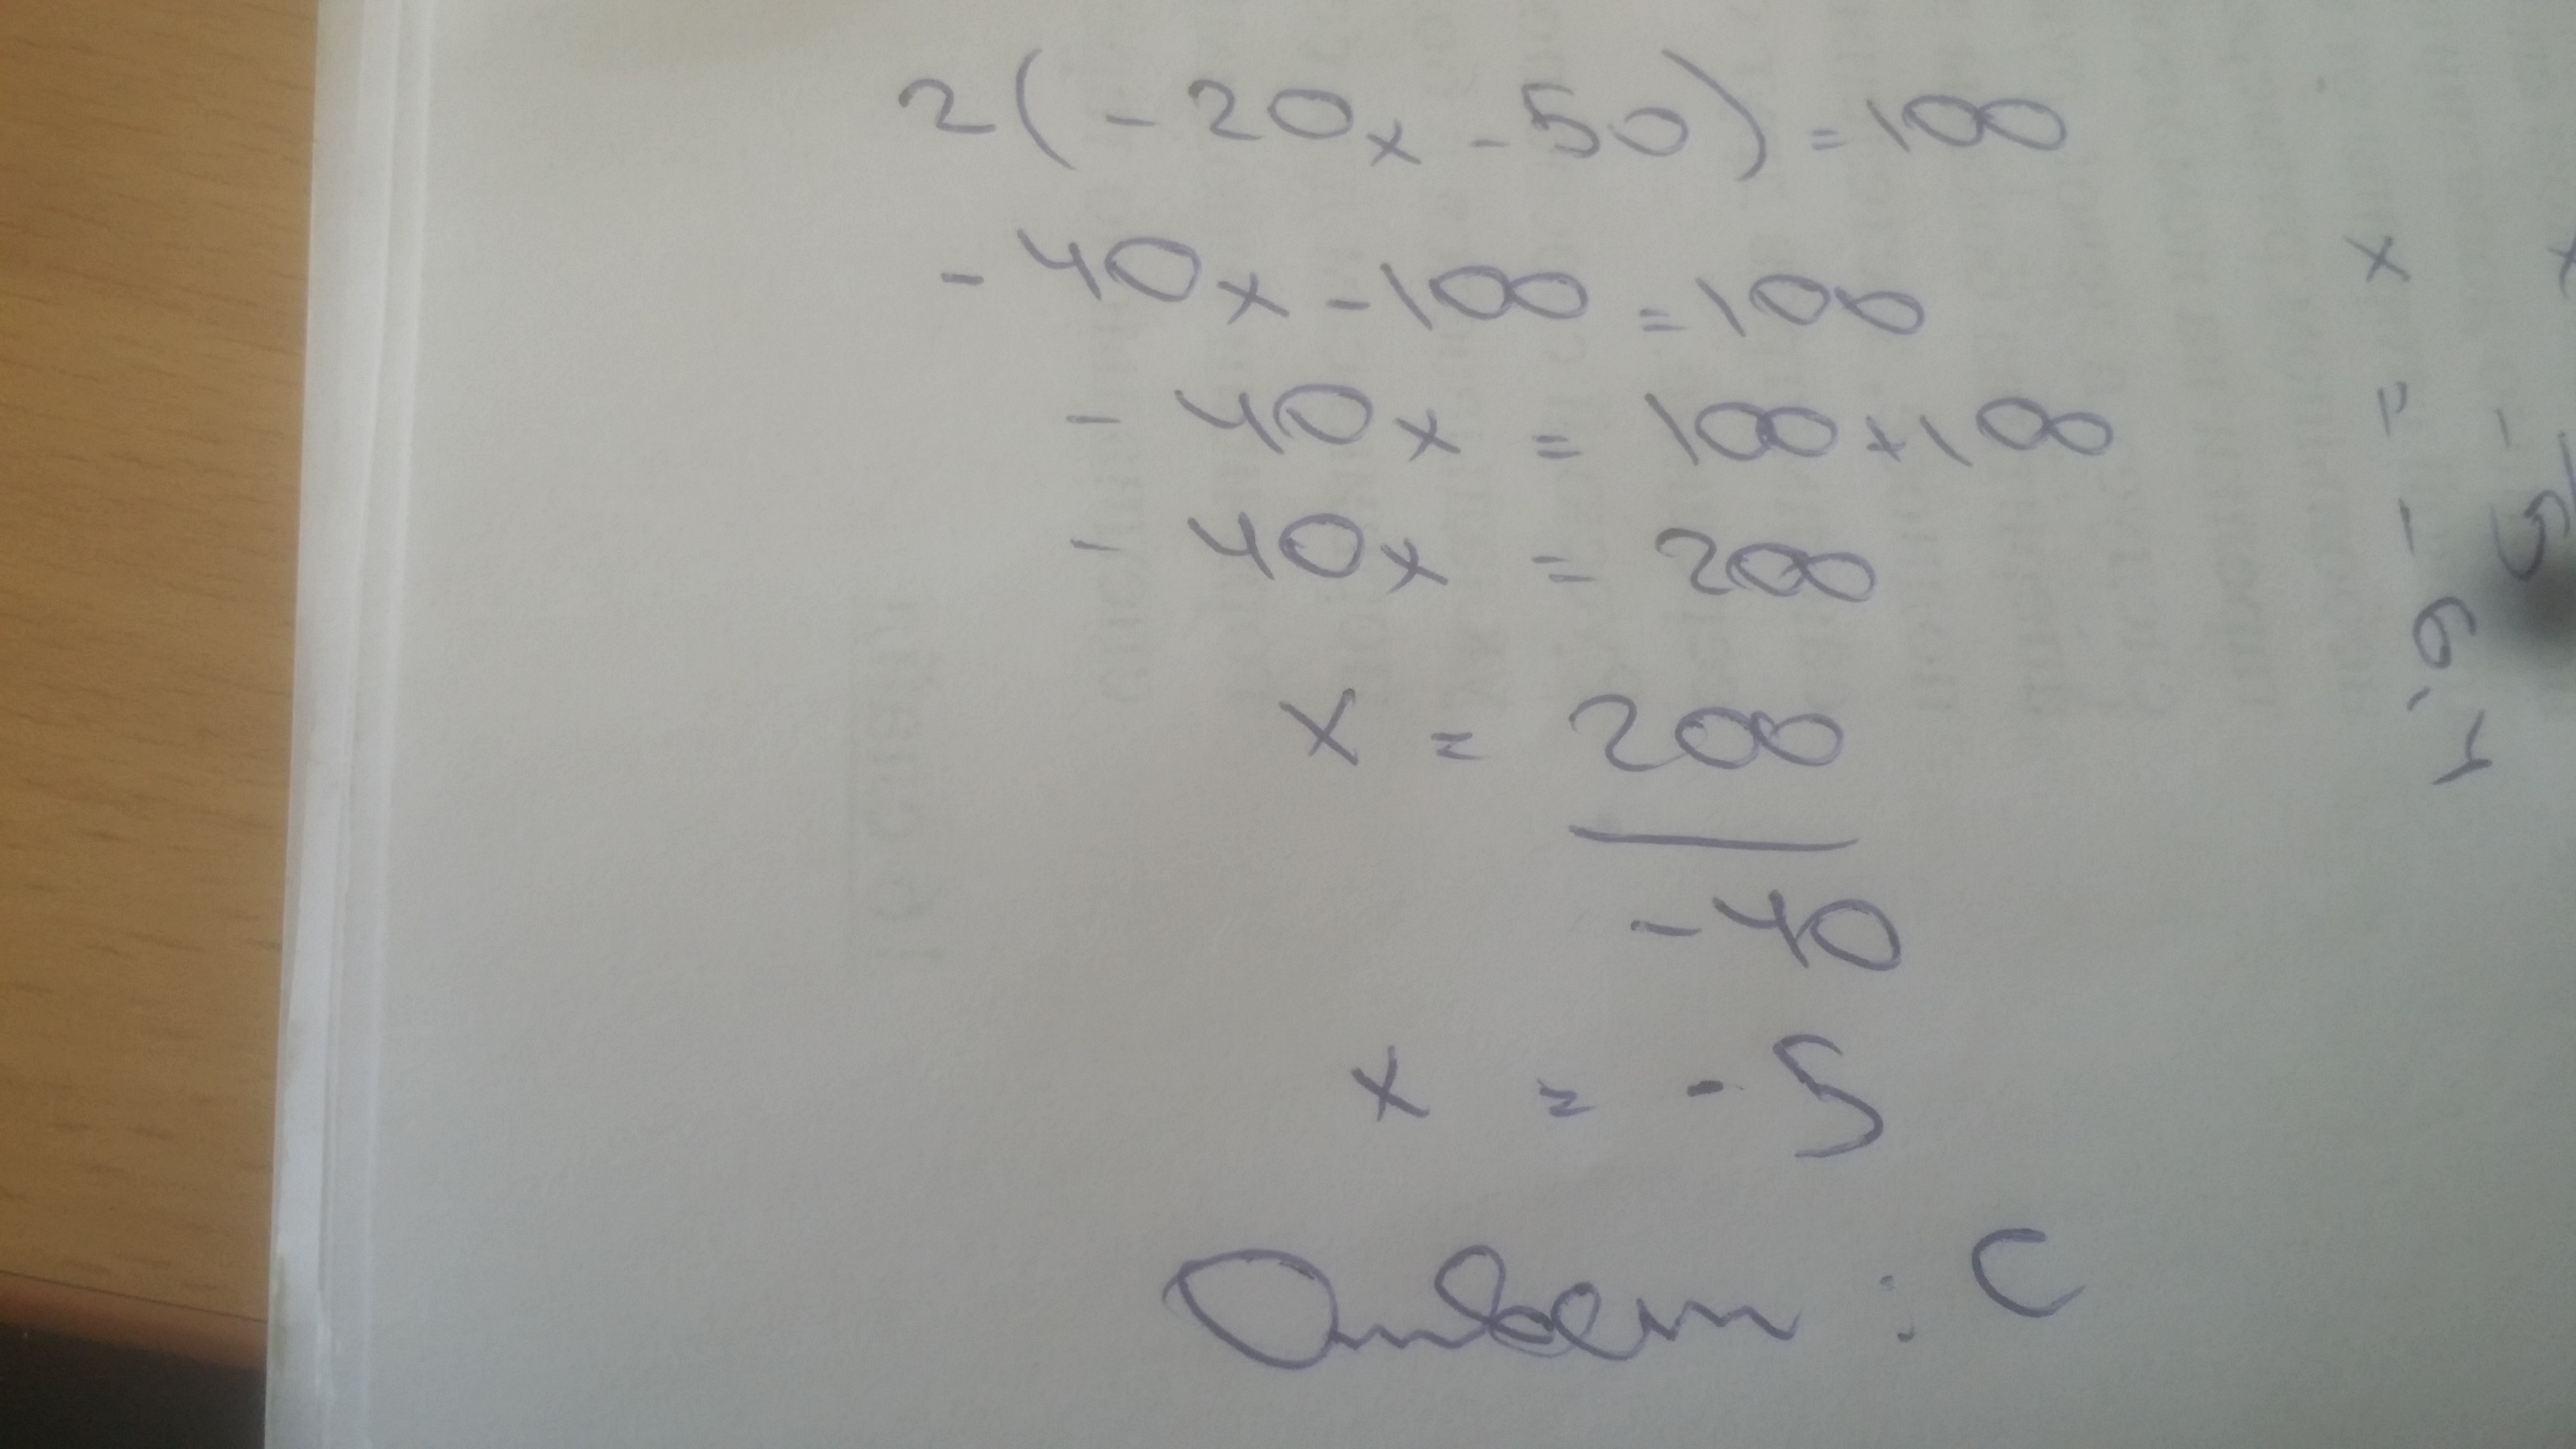 2(-20x-50)=100
-40x-100=100
-40x=100+100
-40x=200
x=200
-40
x=-5
Ответ: C